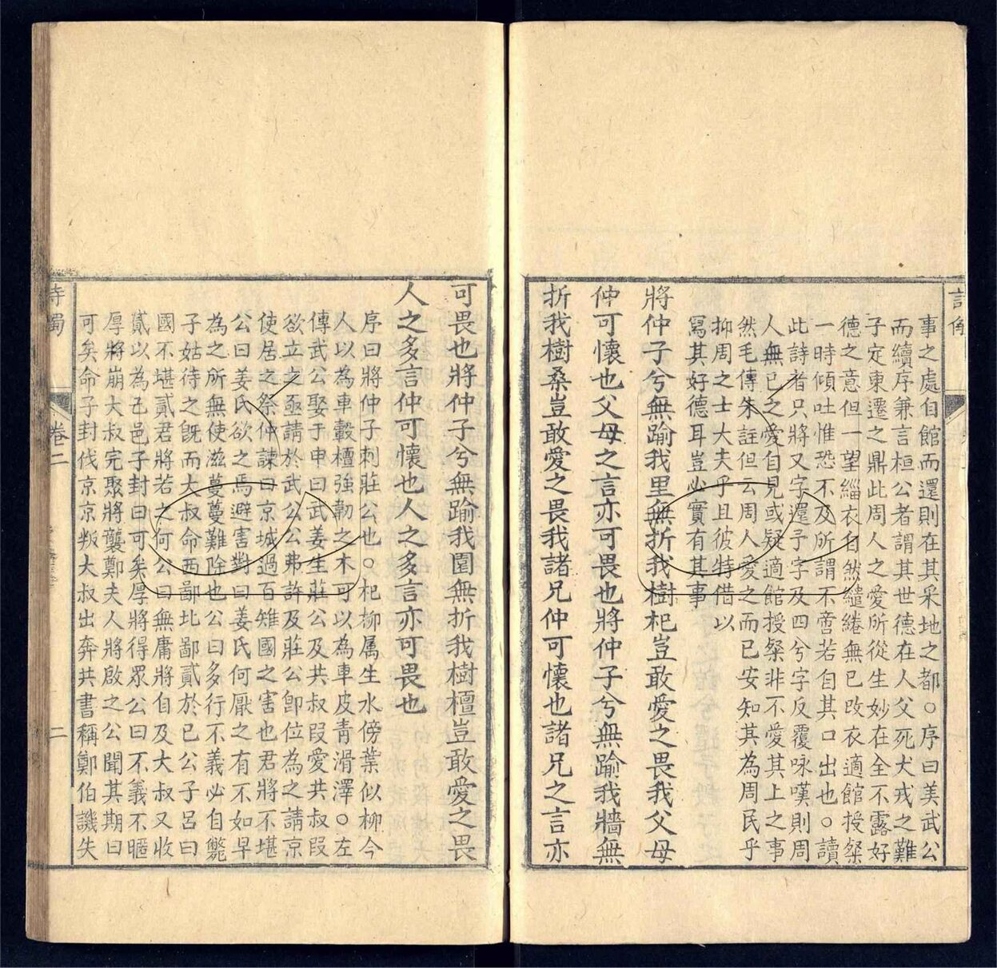 事之處自館而還則在其采地之都○序曰美武公
而續序兼言桓公者謂其世德在人父死犬戎之難
子定東遷之鼎此周人之愛所從生妙在全不露好
德之意但一望緇衣自然繾綣無已改衣適館授粲
一時傾吐惟恐不及所謂不啻若自其口出也○讀
此詩者只將又字還予字及四兮字反覆咏嘆則周
人無已之愛自見或疑適館授粲非不愛其上之事
然毛傳朱註但云周人愛之而已安知其為周民乎
抑周之士大夫乎且彼特借以
寫其好德耳豈必實有其事
將仲子兮無踰我里無折我樹杞豈敢愛之畏我父母
仲可懷也父母之言亦可畏也將仲子兮無踰我牆無
折我樹桑豈敢愛之畏我諸兄仲可懷也諸兄之言亦
可畏也將仲子兮無踰我園無折我樹檀豈敢愛之畏
人之多言仲可懷也人之多言亦可畏也
序曰將仲子刺莊公也○杞柳屬生水傍葉似柳今
人以為車轂檀強韌之木可以為車皮青滑澤○左
傳武公娶于申曰武姜生莊公及共叔叚愛共叔叚
欲立之亟請於武公公弗許及莊公卽位為之請京
使居之祭仲諫曰京城過百雉國之害也君將不堪
公曰姜氏欲之焉避害對曰姜氏何厭之有不如早
為之所無使滋蔓蔓難除也公曰多行不義必自斃
子姑待之旣而大叔命西鄙北鄙貳於已公子呂曰
國不堪貳君將若之何公曰無庸將自及大叔又收
貳以為已邑子封曰可矣厚將得眾公曰不義不暱
厚將崩大叔完聚將襲鄭夫人將啟之公聞其期曰
可矣命子封伐京京叛大叔出奔共書稱鄭伯譏失
卷二
二